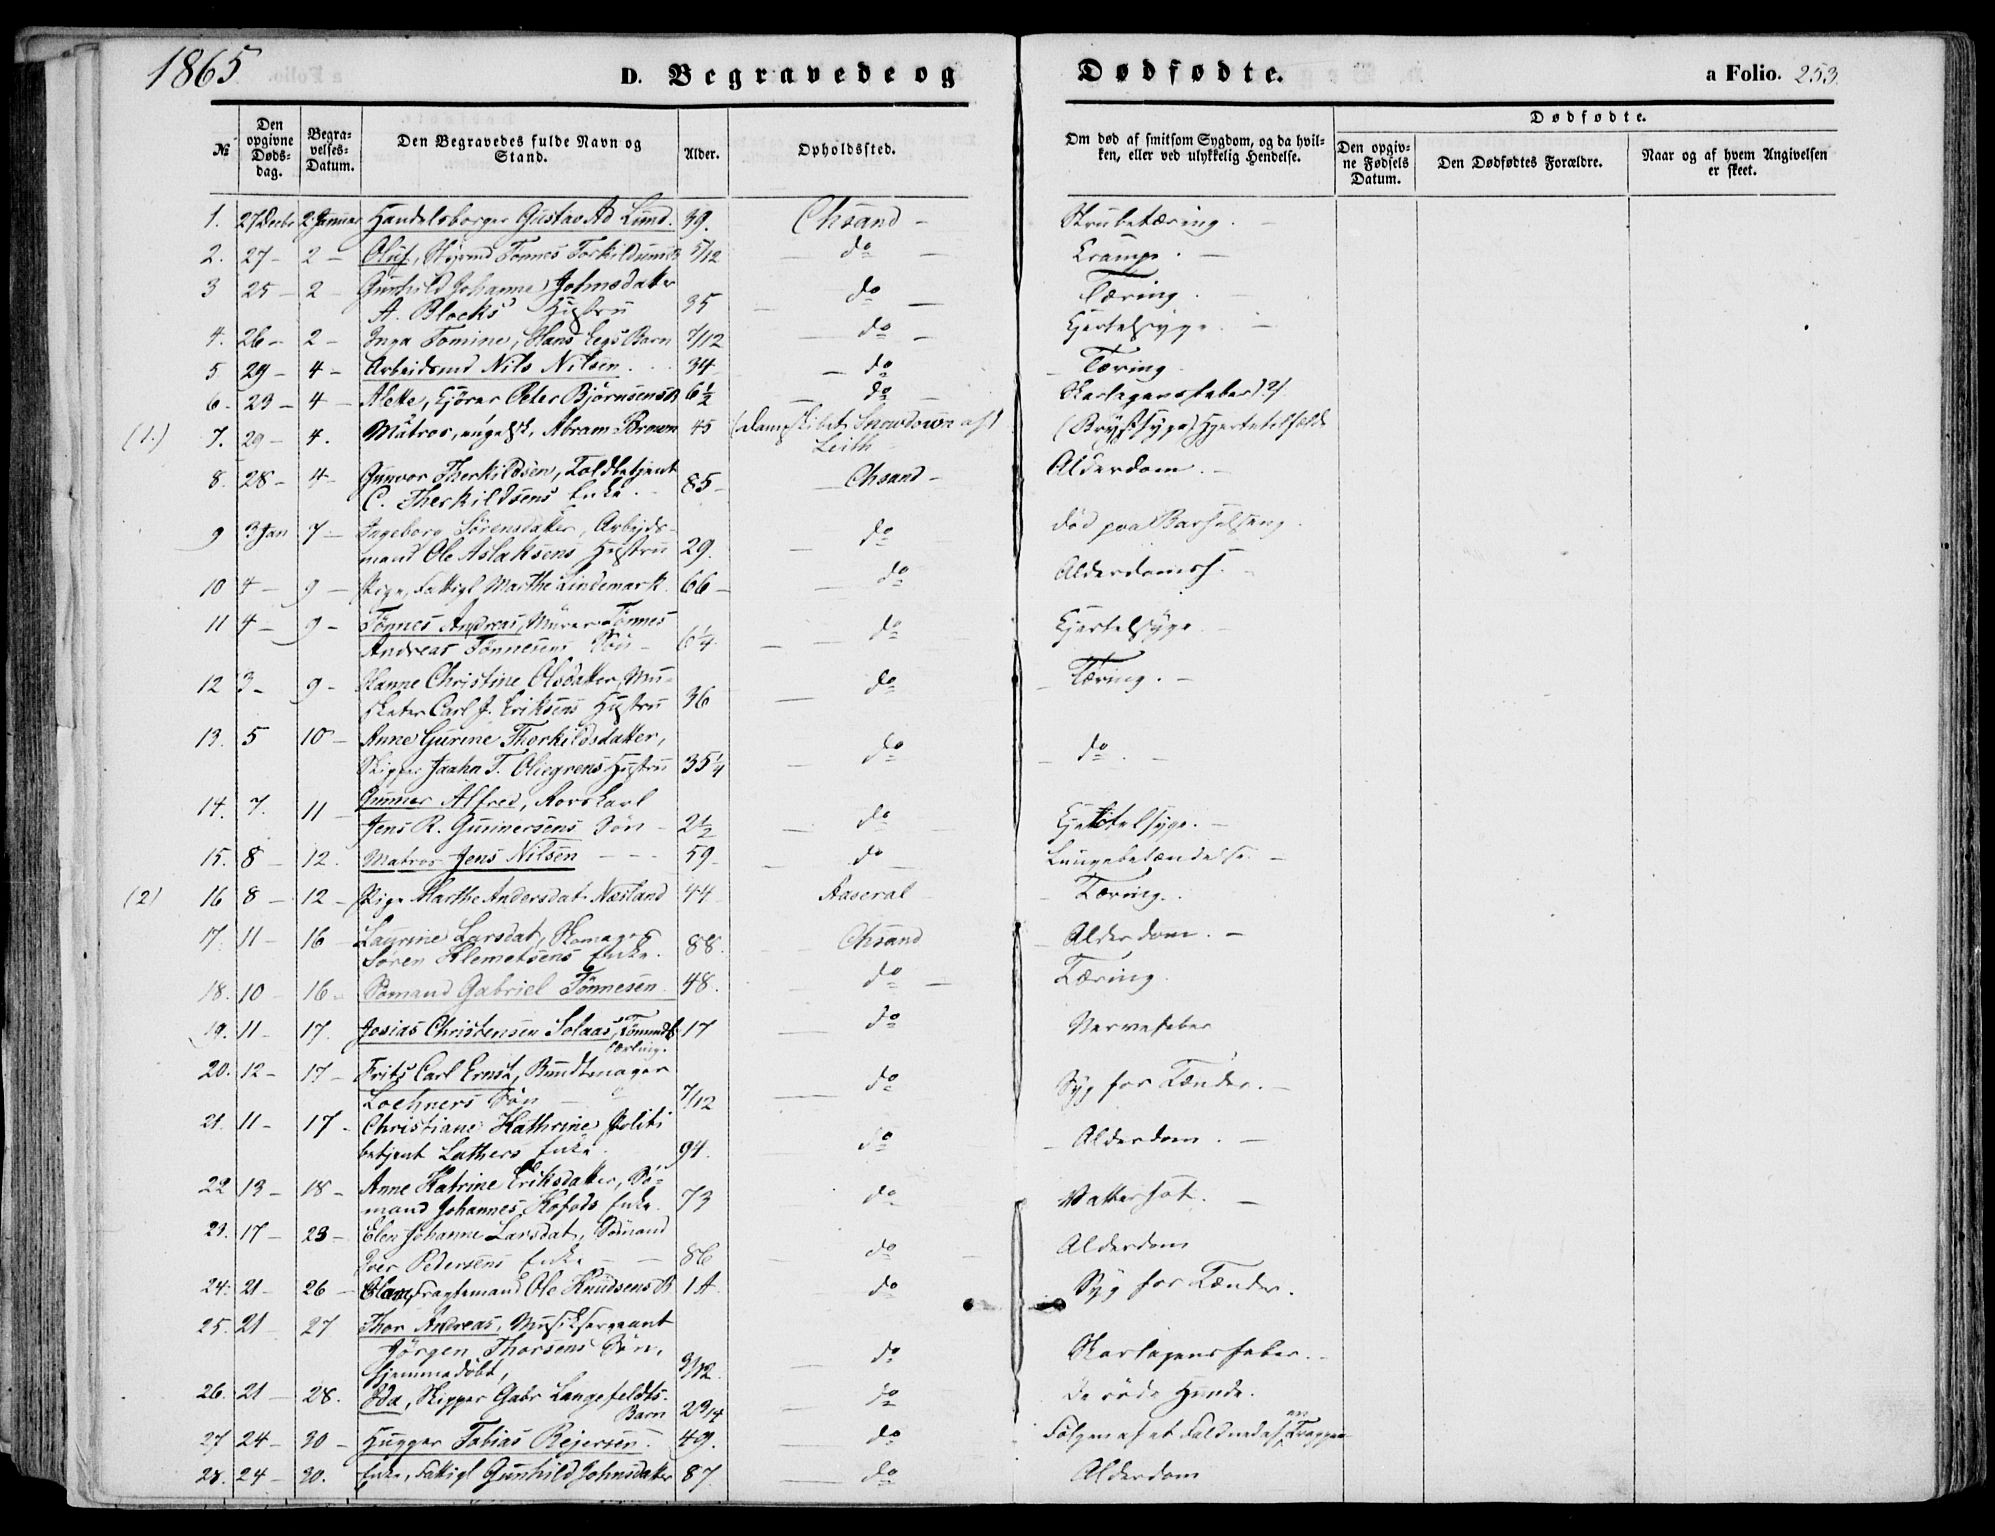 1865
D. Begravede og Dødfødte.
a Folio. 253.
№
Den opgivne Døds-dag.
Begra-velses-Datum.
Den Begravedes fulde Navn og Stand.
Alder.
Opholdssted.
Om død af smitsom Sygdom, og da hvil-ken, eller ved ulykkelig Hendelse.
Dødfødte.
Den opgiv-ne Fødsels Datum.
Den Dødfødtes Forældre.
Naar og af hvem Angivelsen er skeet.
1. 27 Decbr 2 Januar Handelsborger Gustav Ad Lund. 39. Chsand - Strubetæring. -
2. 27 - 2 - Oluf, Tönnes 5/12 do Krampe. -
3 25 - 2 - Gunhild Johanne Johnsdatter
A. Blocks Hustru 35 do Tæring. -
4. 26 - 2 - Inga Tomine, Hans Egs Barn 7/12 do Kjertelsyge. -
5 29 - 4 - Arbeidsmd Nils Nilsen. 34 do Tæring.
6. 29 - 4 - Alette, Peter Björnsens B 6½ do Skarlagensfeber
(1.) 7. 29 - 4. Matros, engelsk, Abram Brown 45 (Dampskibet Snowdown af) (Brystsyge) Hjertetilfælde
Leith
8. 28 - 4 - Gunvor Therkildsen, Toldbetjent
C. Therkildsens Enke. 85 - Chsand - Alderdom. -
9 3 Jan 7 - Ingeborg Sörensdatter, Arbejds-
mand Ole Aslaksens Hustru 29. do död paa Barselseng.
10 4 - 9 - Pige, Fattigl Marthe Lindemark. 66 - do Alderdomss. -
11 4 - 9 - Tönnes Andreas, Murer Tönnes
Andreas Tönnesens Sön - 6¼ do Kjertelsyge -
12 3 - 9 - Hanne Christine Olsdatter, Mu-
sketer Carl J. Eriksens Hustru 36 do Tæring. -
13. 5 10 - Anne Gurine Therkildsdatter,
Skipper T. Hustru 35¼ do do -
14. 7. 11 - Gunner Alfred, Rorskarl
Jens R. Gunnersens Sön - 2½ do Kjertelsyge. -
15. 8 - 12. Matros Jens Nilsen - - - 59. do Lungebetændelse. -
(2) 16 8 - 12 - Pige Marthe Andersdat. Næsland 44 Aaseral Tæring.
17. 11 - 16 - Laurine Larsdat, Skomager
Sören Klemetsens Enke. 88. Chsand Alderdom. -
18. 10 - 16 - Sömand Gabriel Tönnesen. 48. do - Tæring.
19. 11 - 17. Josias Christensen Solaas, Tömmerm.
Lærling. 17 do Nervefeber
20. 12 - 17 - Frits Carl Ernst, Bundtmager
Loehners Sön - 7/12 do Syg for Tænder. -
21. 11 - 17 - Christiane Kathrine Politi
betjent Lathers Enke. 94. do Alderdom. -
22 13 - 18 - Anne Katrine Eriksdatter, Sö-
mand Johannes Kofods Enke. 73 do Vattersot. -
23. 17 - 23 - Elen Johanne Larsdat, Sömand
Iver Pedersens Enke - - 86 do Alderdom
24. 21 - 26 - Fragtemand Ole Knudsens B 1 A. do Syg for Tænder.
25. 21 - 27 Thor Andreas, Musiksergeant
Jörgen Thorsens Sön,
hjemmedöbt, 3/12. do Skarlagensfeber. -
26. 21 - 28. Ida, Skipper Gabr Langefeldts
Barn 2¾ do De röde Hunde.
27 24 - 30 - Hugger Tobias Rejersen. 49. do Fölgen af et Fald ned af en Trappe
28. 24 - 30. Enke, Fattigl Gunhild Johnsdatter 87. do Alderdom